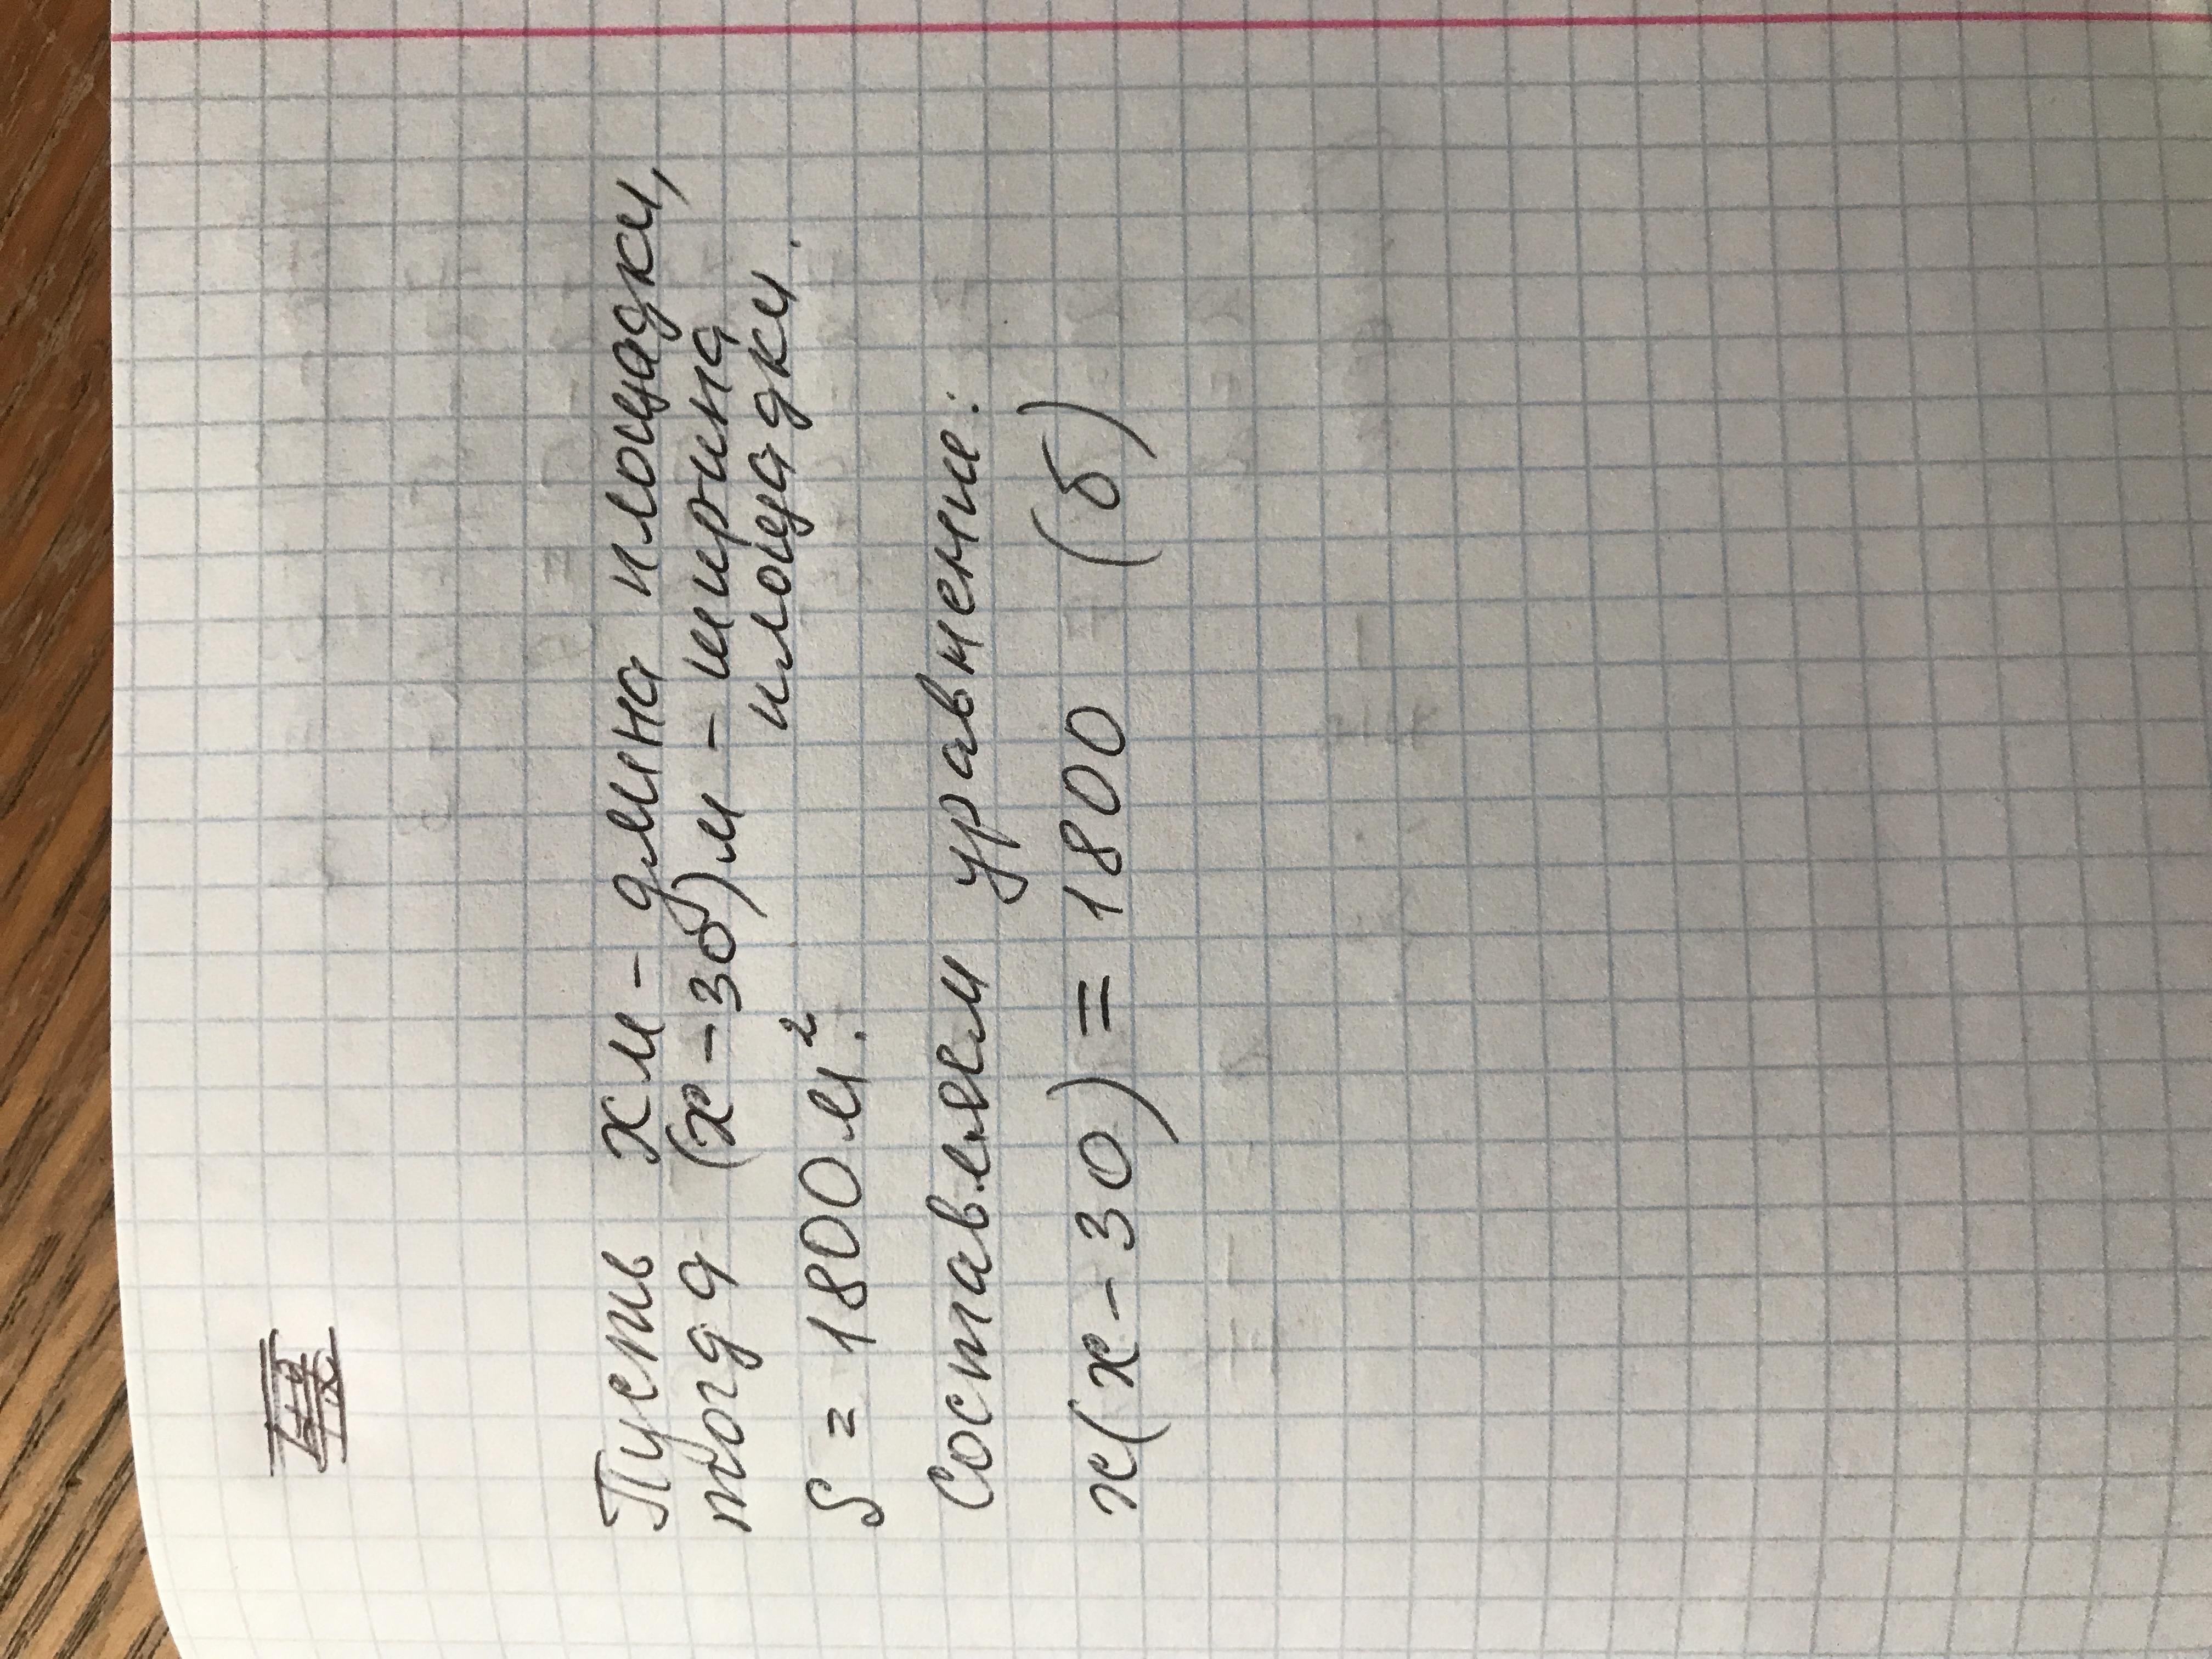 Пусть хм - длина площадки,
тогда (х-30)м - ширина
площадки.
S = 1800 м².
Составляем уравнение:
х(х-30) = 1800 (б)